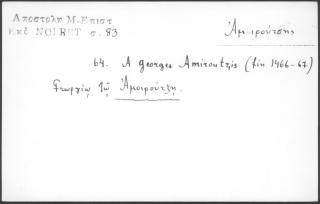 Αποστολη Μ. Επιστ
Εκδ NOIRET σ. 83
Ἀμιρούτσης
64. A Georges Amiroutzis (fin 1466-67)
Γεωργίῳ τῷ Ἀμοιρούτζῃ.